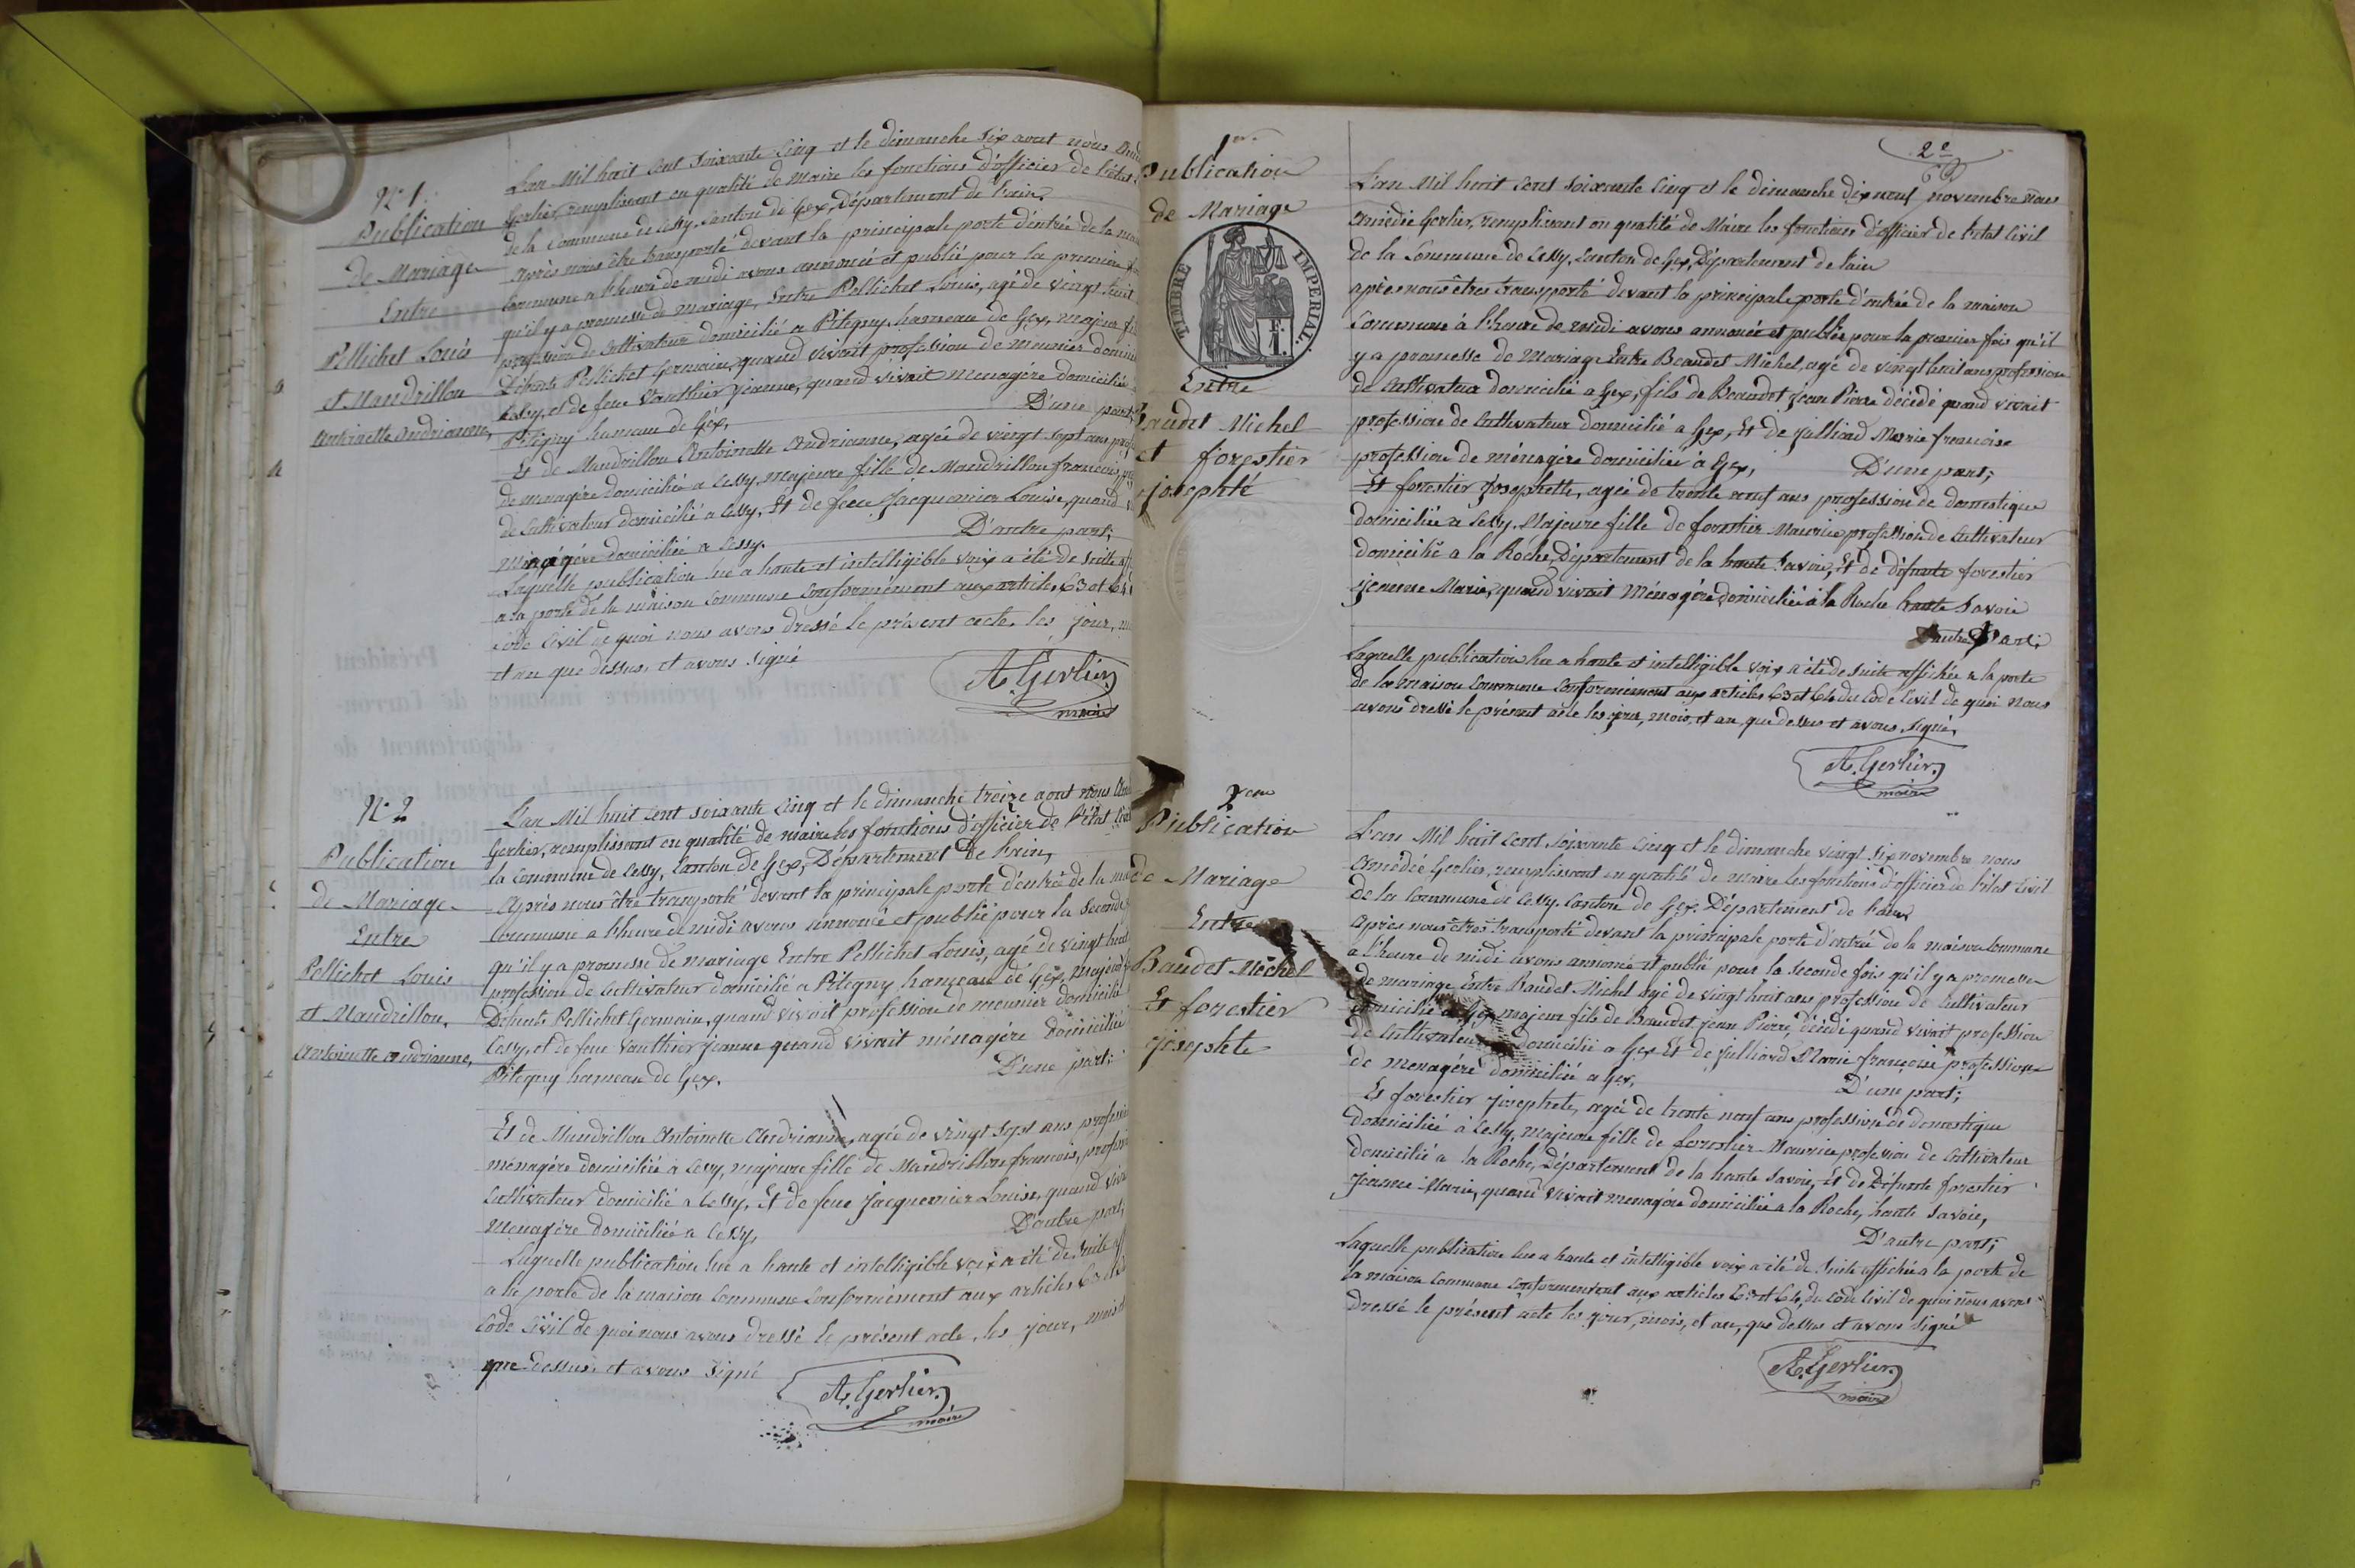 N° 1.
Publication
de Mariage
Entre
Pellichet Louis
et Mandrillon
Antoinette Andrianne,
L'an Mil huit cent soixante cinq et le dimanche six aout nous
Gerlier, remplissant en qualité de Maire les fonctions d'officier de l'état
de la Commune de Cessy, Canton de Gex, Département de l'ain.
Après nous être transporté devant la principale porte d'entrée de la
Commune a l'heure de midi avons annoncé et publié pour la premiere
qu'il y a promesse de mariage, Entre Pellichet Louis, agé de vingt huit
profession de Cultivateur domicilié a Pitegny, hameau de Gex, majeur
Défunts Pellichet Germain, quand vivait profession de meunier
Cessy, et de feue Vauthier jeanne, quand vivait menagère domiciliée
Pitegny hameau de Gex, D'une part,
Et de Mandrillon Antoinette Andrianne, agée de vingt sept ans
de menagère domiciliée a Cessy, majeure fille de Mandrillon francois,
de Cultivateur domicilié a Cessy, Et de feue Jacquemier Louise, quand
Ménagère domiciliée a Cessy. D'autre part;
Laquelle publication lue a haute et intelligible voix a été de suite
a la porte de la maison Commune Conformément aux articles 63 et 64
Code Civil de quoi nous avons dressé le présent acte les jour,
et an que dessus, et avons signé
A. Gerlier
maire
N° 2
Publication
de Mariage
Entre
Pellichet Louis
et Mandrillon,
Antoinette andrianne,
L'an Mil huit cent soixante cinq et le dimanche treize aout nous
Gerlier, remplissant en qualité de maire les fonctions d'officier de l'état
la Commune de Cessy, Canton de Gex, Département de l'ain,
Après nous être transporté devant la principale porte d'entrée de la
Commune a l'heure de midi avons annoncé et publié pour la seconde
qu'il y a promesse de mariage Entre Pellichet Louis, agé de vingt huit
profession de Cultivateur domicilié a Pitegny hameau de Gex, majeur
Défunts Pellichet Germain, quand vivait profession de meunier domicilié
Cessy, et de feue Vauthier jeanne quand vivait ménagère domiciliée
Pitegny hameau de Gex. D'une part;
Et de Mandrillon Antoinette Andrianne, agée de vingt sept ans
ménagère domiciliée a Cessy, majeure fille de Mandrillon francois,
Cultivateur domicilié a Cessy, Et de feue Jacquemier Louise, quand
Menagère domiciliée a Cessy, D'autre part;
Laquelle publication lue a haute et intelligible voix a été de suite
a la porte de la maison Commune Conformément aux articles
Code Civil de quoi nous avons dressé le présent acte, les jour, mois
que dessus, et avons signé
A. Gerlier
maire
2e
1ere
Publication
de Mariage
TIMBRE IMPERIAL.
1 F.
Entre
audet Michel
et forestier
josephté
L'an Mil huit cent soixante cinq et le dimanche dix neuf novembre nous
Amédée Gerlier, remplissant en qualité de Maire les fonctions d'officier de l'état Civil
de la Commune de Cessy, Canton de Gex, Département de l'ain
après nous êtres transporté devant la principale porte d'entrée de la maison
Commune à l'heure de midi avons annoncé et publié pour la premier fois qu'il
y a promesse de Mariage Entre Beaudet Michel, agé de vingt huit ans profession
de Cultivateur domicilié a Gex, fils de Beaudet Jean Pierre décédé quand vivait
profession de Cultivateur domicilié a Gex, Et de Julliard Marie francoise
profession de ménagère domiciliée a Gex, D'une part;
Et forestier Josephette, agée de trente neuf ans profession de domestique
domiciliée a Cessy, Majeure fille de forestier Maurice profession de Cultivateur
domicilié a la Roche, Département de la haute Savoie, Et de défunte forestier
Jeanne Marie, quand vivait Ménagère, domiciliée a la Roche haute Savoie
autre Part;
Laquelle publication lue a haute et intelligible voix a été de suite affichée a la porte
de la maison Commune Conformément aux articles 63 et 64 du Code Civil de quoi nous
avons dressé le présent acte les jour, mois, et an, que dessus et avons signé,
A. Gerlier
maire
2eme
Publication
de Mariage
Entre
Baudet Michel
Et forestier
josephte
L'an Mil huit cent soixante cinq et le dimanche vingt six novembre nous
Amédée Gerlier, remplissant en qualité de maire les fonctions d'officier de l'état Civil
de la Commune de Cessy, Canton de Gex, Département de l'ain
Après nous êtres transporté devant la principale porte d'entrée de la maison Commune
a l'heure de midi avons annoncé et publié pour la seconde fois qu'il y a promesse
de mariage Entre Baudet Michel agé de vingt huit ans profession de Cultivateur
domicilié a Gex, majeur fils de Baudet jean Pierre, décédé quand vivait profession
de Cultivateur domicilié a Gex Et de Julliard Marie francoise profession
de menagère domiciliée a Gex, D'une part;
Et forestier josephete, agée de trente neuf ans profession de domestique
domiciliée à Cessy, majeure fille de forestier Maurice profession de Cultivateur
domicilié a la Roche, Département de la haute Savoie, Et de Défunte forestier
jeanne Marie, quand vivait menagère domiciliée a la Roche, haute Savoie,
D'autre part;
Laquelle publication lue a haute et intelligible voix a été de suite affichée a la porte de
la maison Commune Conformement aux articles 63 et 64, du Code Civil de quoi nous avons
dressé le présent acte les jour, mois, et an, que dessus et avons signé
A. Gerlier
maire